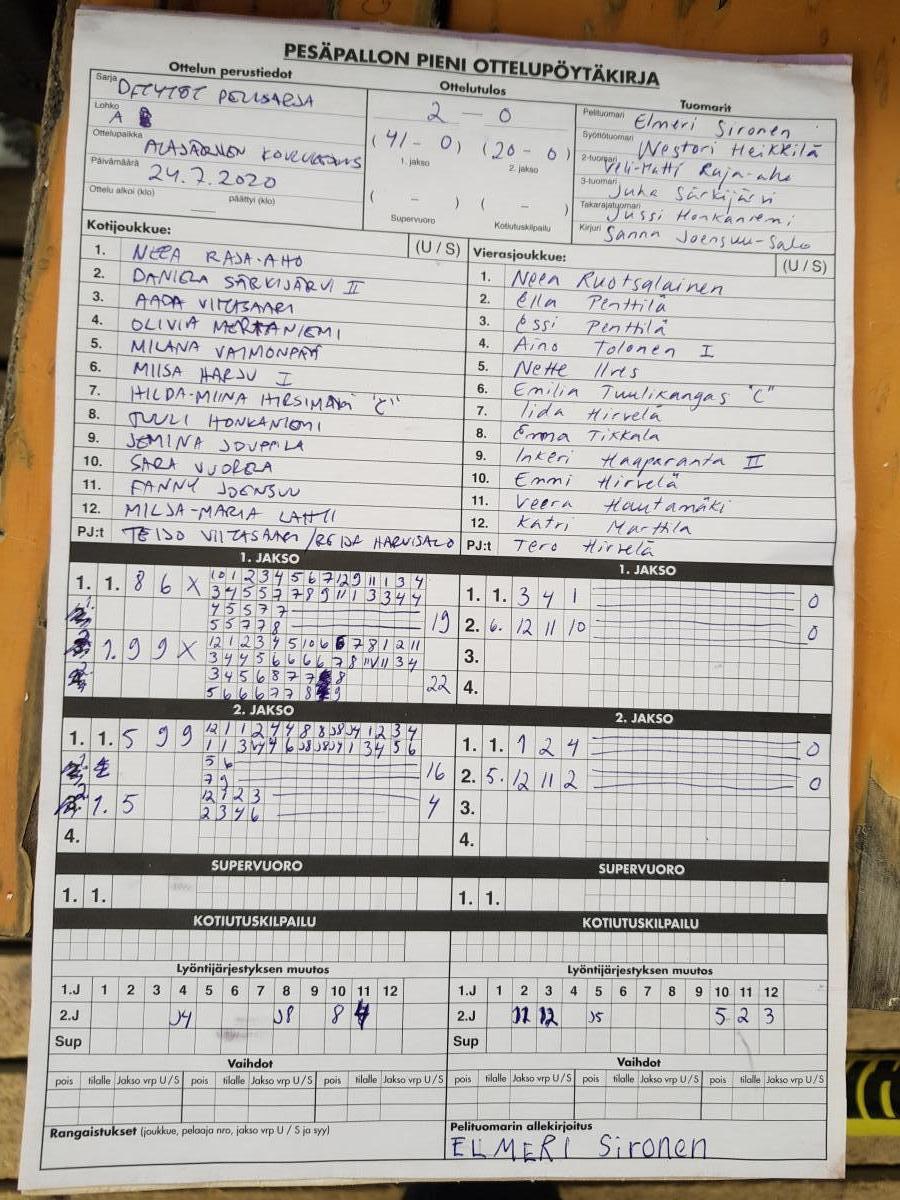 PESÄPALLON PIENI OTTELUPÖYTÄKIRJA
Ottelun perustiedot
Sarja
PELISARJA
Lohko
A
Ottelupaikka
Päivämäärä
24.7.2020
Ottelu alkoi (klo) päättyi (klo)
Ottelutulos
2 — 0
(41 - 0) (20 - 0)
1. jakso 2. jakso
( - ) ( - )
Supervuoro Kotiutuskilpailu
Tuomarit
Pelituomari Elmeri Sironen
Syöttötuomari Westori Heikkilä
2-tuomari Veli-Matti Raja-aho
3-tuomari Juha Särkijärvi
Takarajatuomari Jussi Honkaniemi
Kirjuri Sanna Joensuu-Salo
Kotijoukkue: (U / S)
1. NEEA RAJA-AHO
2. DANIELA SÄRKIJÄRVI II
3. AADA VIITASAARI
4. OLIVIA MERKANIEMI
5. MILANA VAIMONPÄÄ
6. MIISA HARJU I
7. HILDA-MIINA HIRSIMÄKI "C"
8. TUULI HONKANIEMI
9. JEMINA JOUPPILA
10. SARA VUORELA
11. FANNY JOENSUU
12. MILJA-MARIA LAHTI
PJ:t TEIJO VIITASAARI / REIJA HARVISALO
Vierasjoukkue: (U / S)
1. Neea Ruotsalainen
2. Ella Penttilä
3. Essi Penttilä
4. Aino Tolonen I
5. Nette Ilres
6. Emilia Tuulikangas "C"
7. Iida Hirvelä
8. Emma Tikkala
9. Inkeri Haaparanta II
10. Emmi Hirvelä
11. Veera Hautamäki
12. Katri Marttila
PJ:t Tero Hirvelä
1. JAKSO
1. 1. 8 6 X 10 1 2 3 4 5 6 7 12 9 11 1 3 4
3 4 5 5 7 7 8 9 11 1 3 3 4 4
4 5 5 7 7
5 5 7 7 8 19
1. 9 9 X 12 1 2 3 4 5 10 6 6 7 8 1 2 11
3 4 4 5 6 6 6 6 7 8 11 11 3 4
3 4 5 6 8 7 7 8
5 6 6 6 7 7 8 9 22
1. JAKSO
1. 1. 3 4 1 0
2. 6. 12 11 10 0
3.
4.
2. JAKSO
1. 1. 5 9 9 12 1 1 2 4 4 8 8 J8 J4 1 2 3 4
1 1 3 J4 4 6 J8 J8 J4 1 3 4 5 6
5 6
7 9 16
1. 5 12 1 2 3
2 3 4 6 4
4.
2. JAKSO
1. 1. 1 2 4 0
2. 5. 12 11 2 0
3.
4.
SUPERVUORO
1. 1.
SUPERVUORO
1. 1.
KOTIUTUSKILPAILU
KOTIUTUSKILPAILU
Lyöntijärjestyksen muutos
1.J 1 2 3 4 5 6 7 8 9 10 11 12
2.J J4 J8 8 4
Sup
Lyöntijärjestyksen muutos
1.J 1 2 3 4 5 6 7 8 9 10 11 12
2.J 11 12 J5 5 2 3
Sup
Vaihdot
pois tilalle Jakso vrp U / S pois tilalle Jakso vrp U / S pois tilalle Jakso vrp U / S
Vaihdot
pois tilalle Jakso vrp U / S pois tilalle Jakso vrp U / S pois tilalle Jakso vrp U / S
Rangaistukset (joukkue, pelaaja nro, jakso vrp U / S ja syy)
Pelituomarin allekirjoitus
ELMERI Sironen